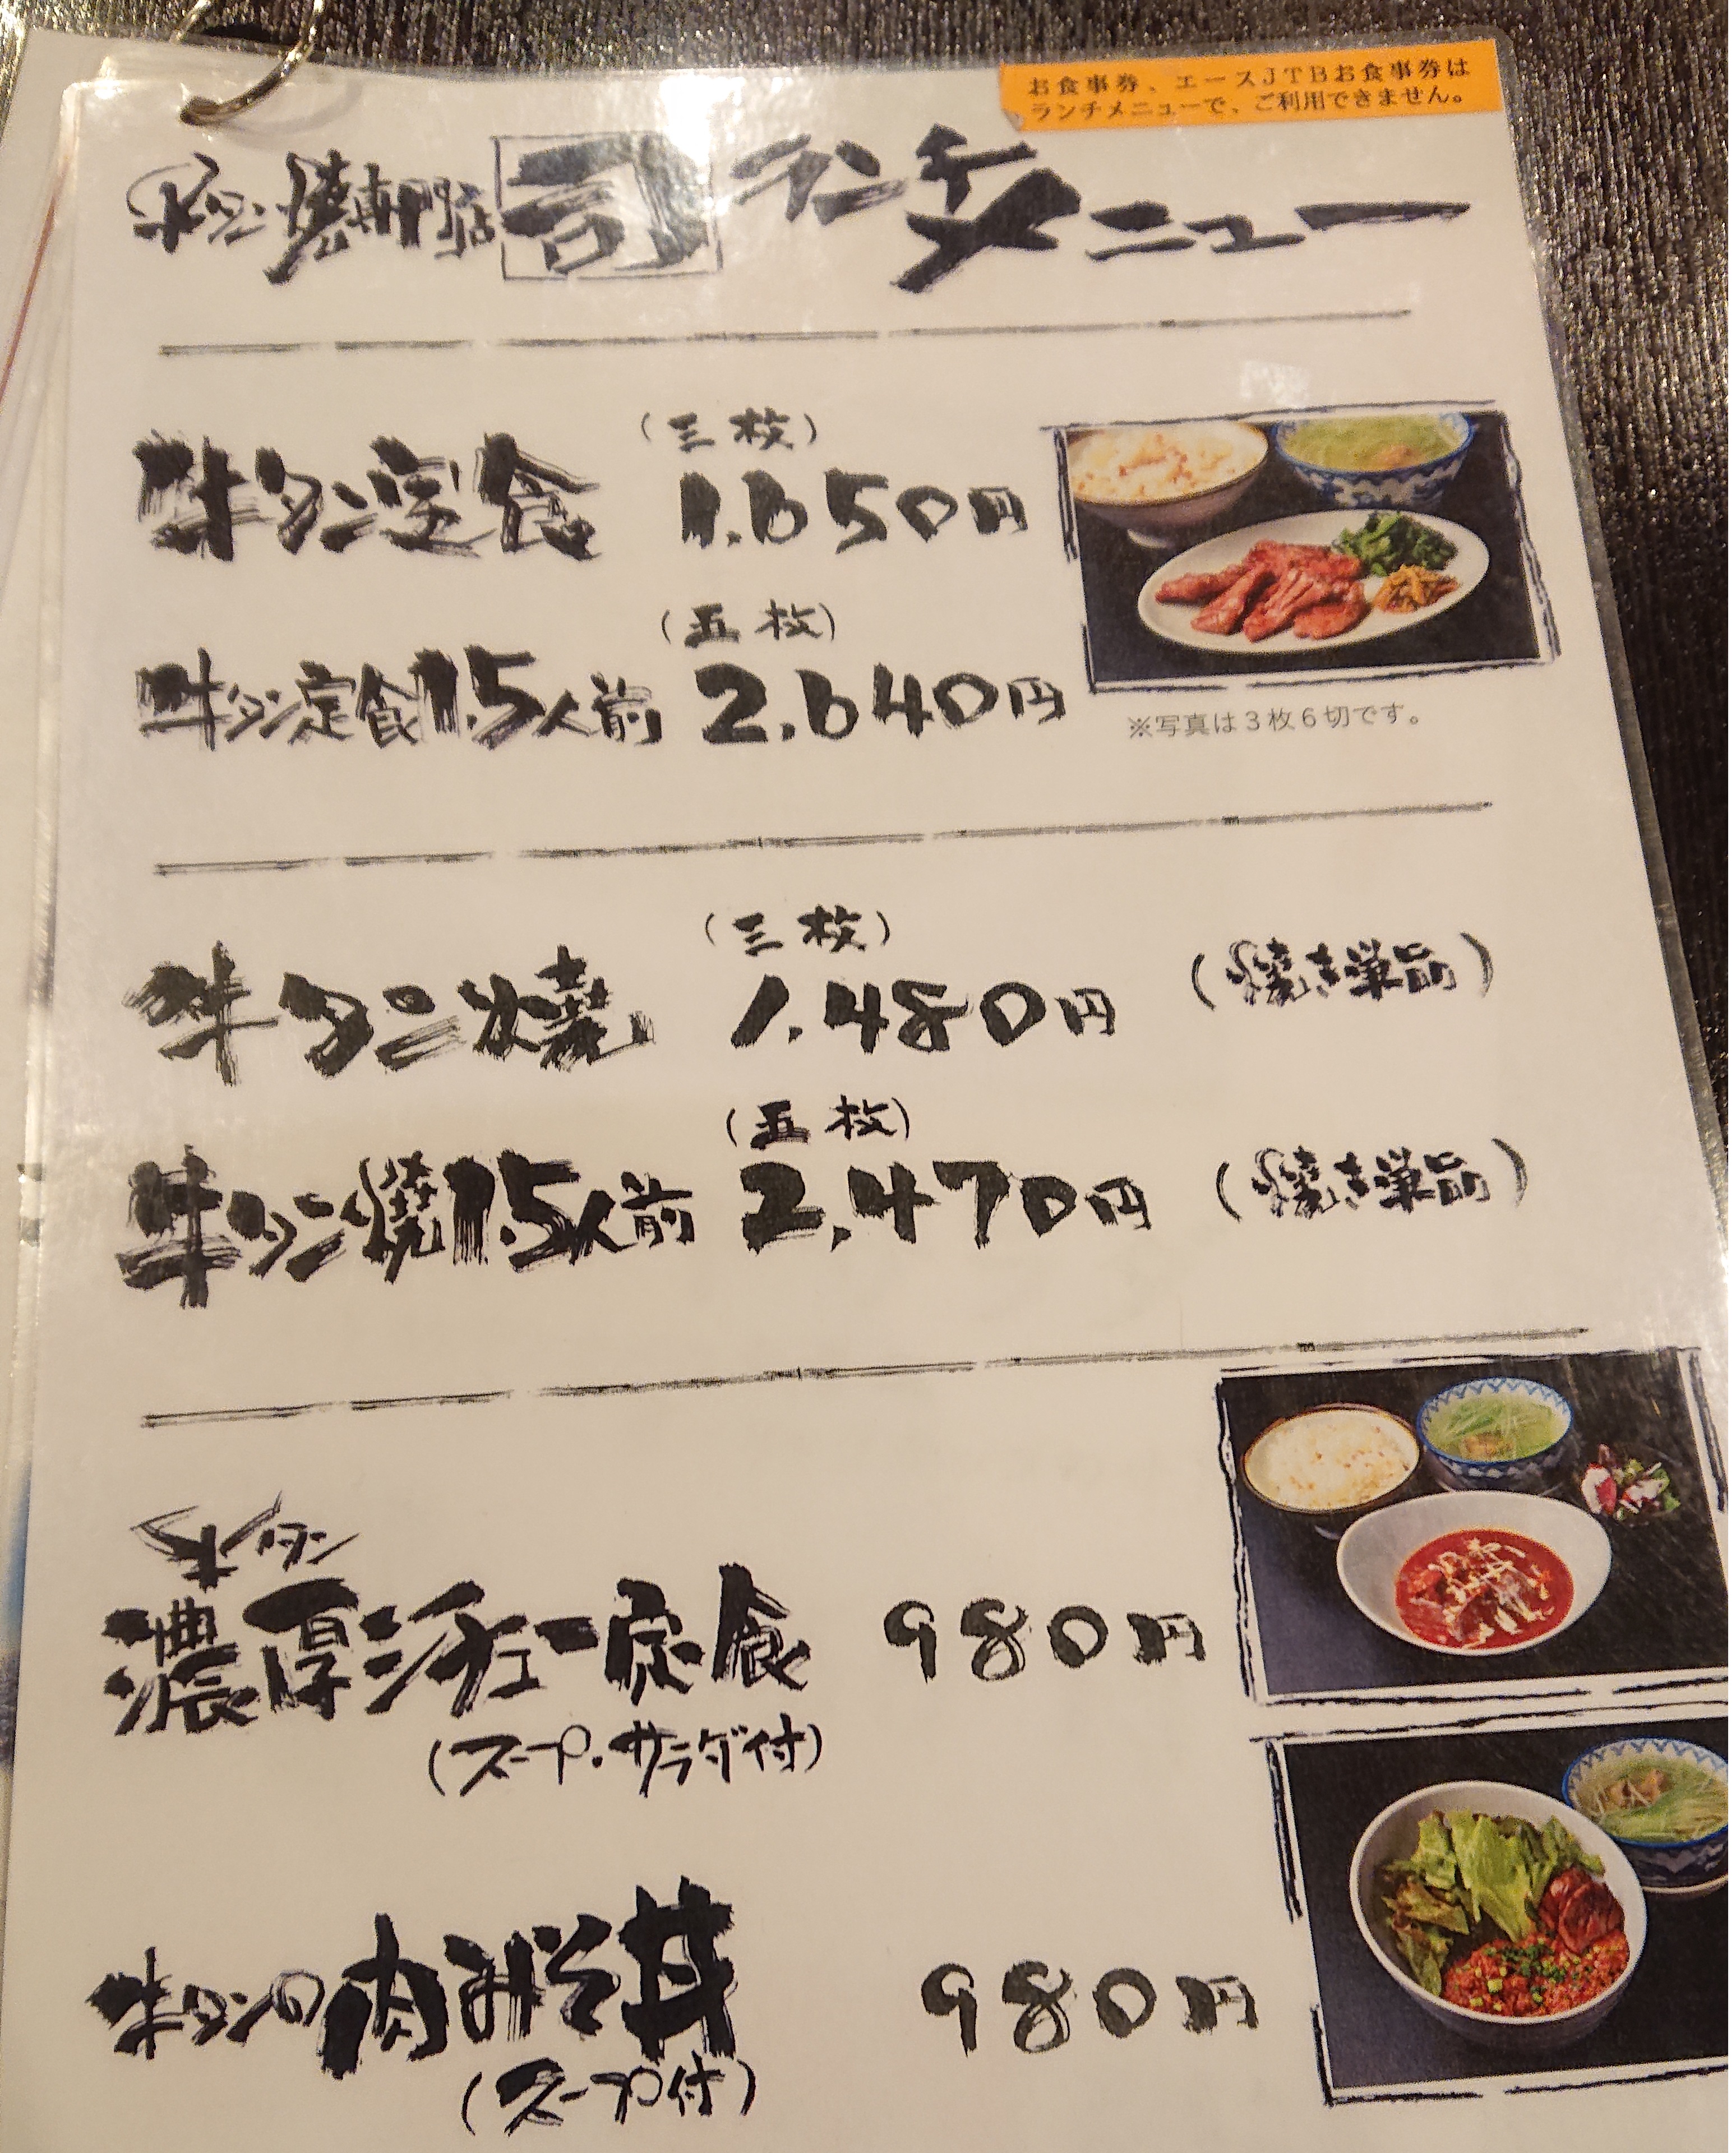 お食事券、エースJTBお食事券は
ランチメニューで、ご利用できません。
牛タン焼専門店 司 ランチメニュー
(三枚)
牛タン定食 1.650円
(五枚)
牛タン定食1.5人前 2.640円
※写真は3枚6切です。
(三枚)
牛タン焼 1.480円 (焼き単品)
(五枚)
牛タン焼1.5人前 2.470円 (焼き単品)
牛タン
濃厚シチュー定食 980円
(スープ・サラダ付)
牛タンの肉みそ丼 980円
(スープ付)